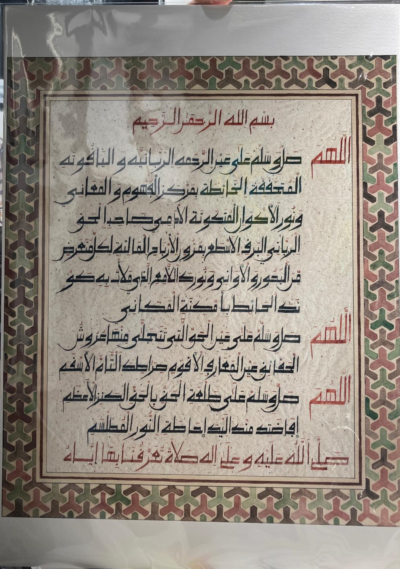 بسم الله الرحمن الرحيم
اللهم صل وسلم على عين الرحمة الربانية والياقوتة
المتحققة الحائطة بمركز الفهوم والمعاني
ونور الأكوان المتكونة الآدمي صاحب الحق
الرباني البرق الأسطع بمزون الأرباح المالئة لكل متعرض
من البحور والأواني ونورك اللامع الذي ملأت به كو
نك الحائط بأمكنة المكاني
اللهم صل وسلم على عين الحق التي تتجلى منها عروش
الحقائق عين المعارف الأقوم صراطك التام الأسقم
اللهم صل وسلم على طلعة الحق بالحق الكنز الأعظم
إفاضتك منك إليك إحاطة النور المطلسم
صلى الله عليه وعلى آله صلاة تعرفنا بها إياه